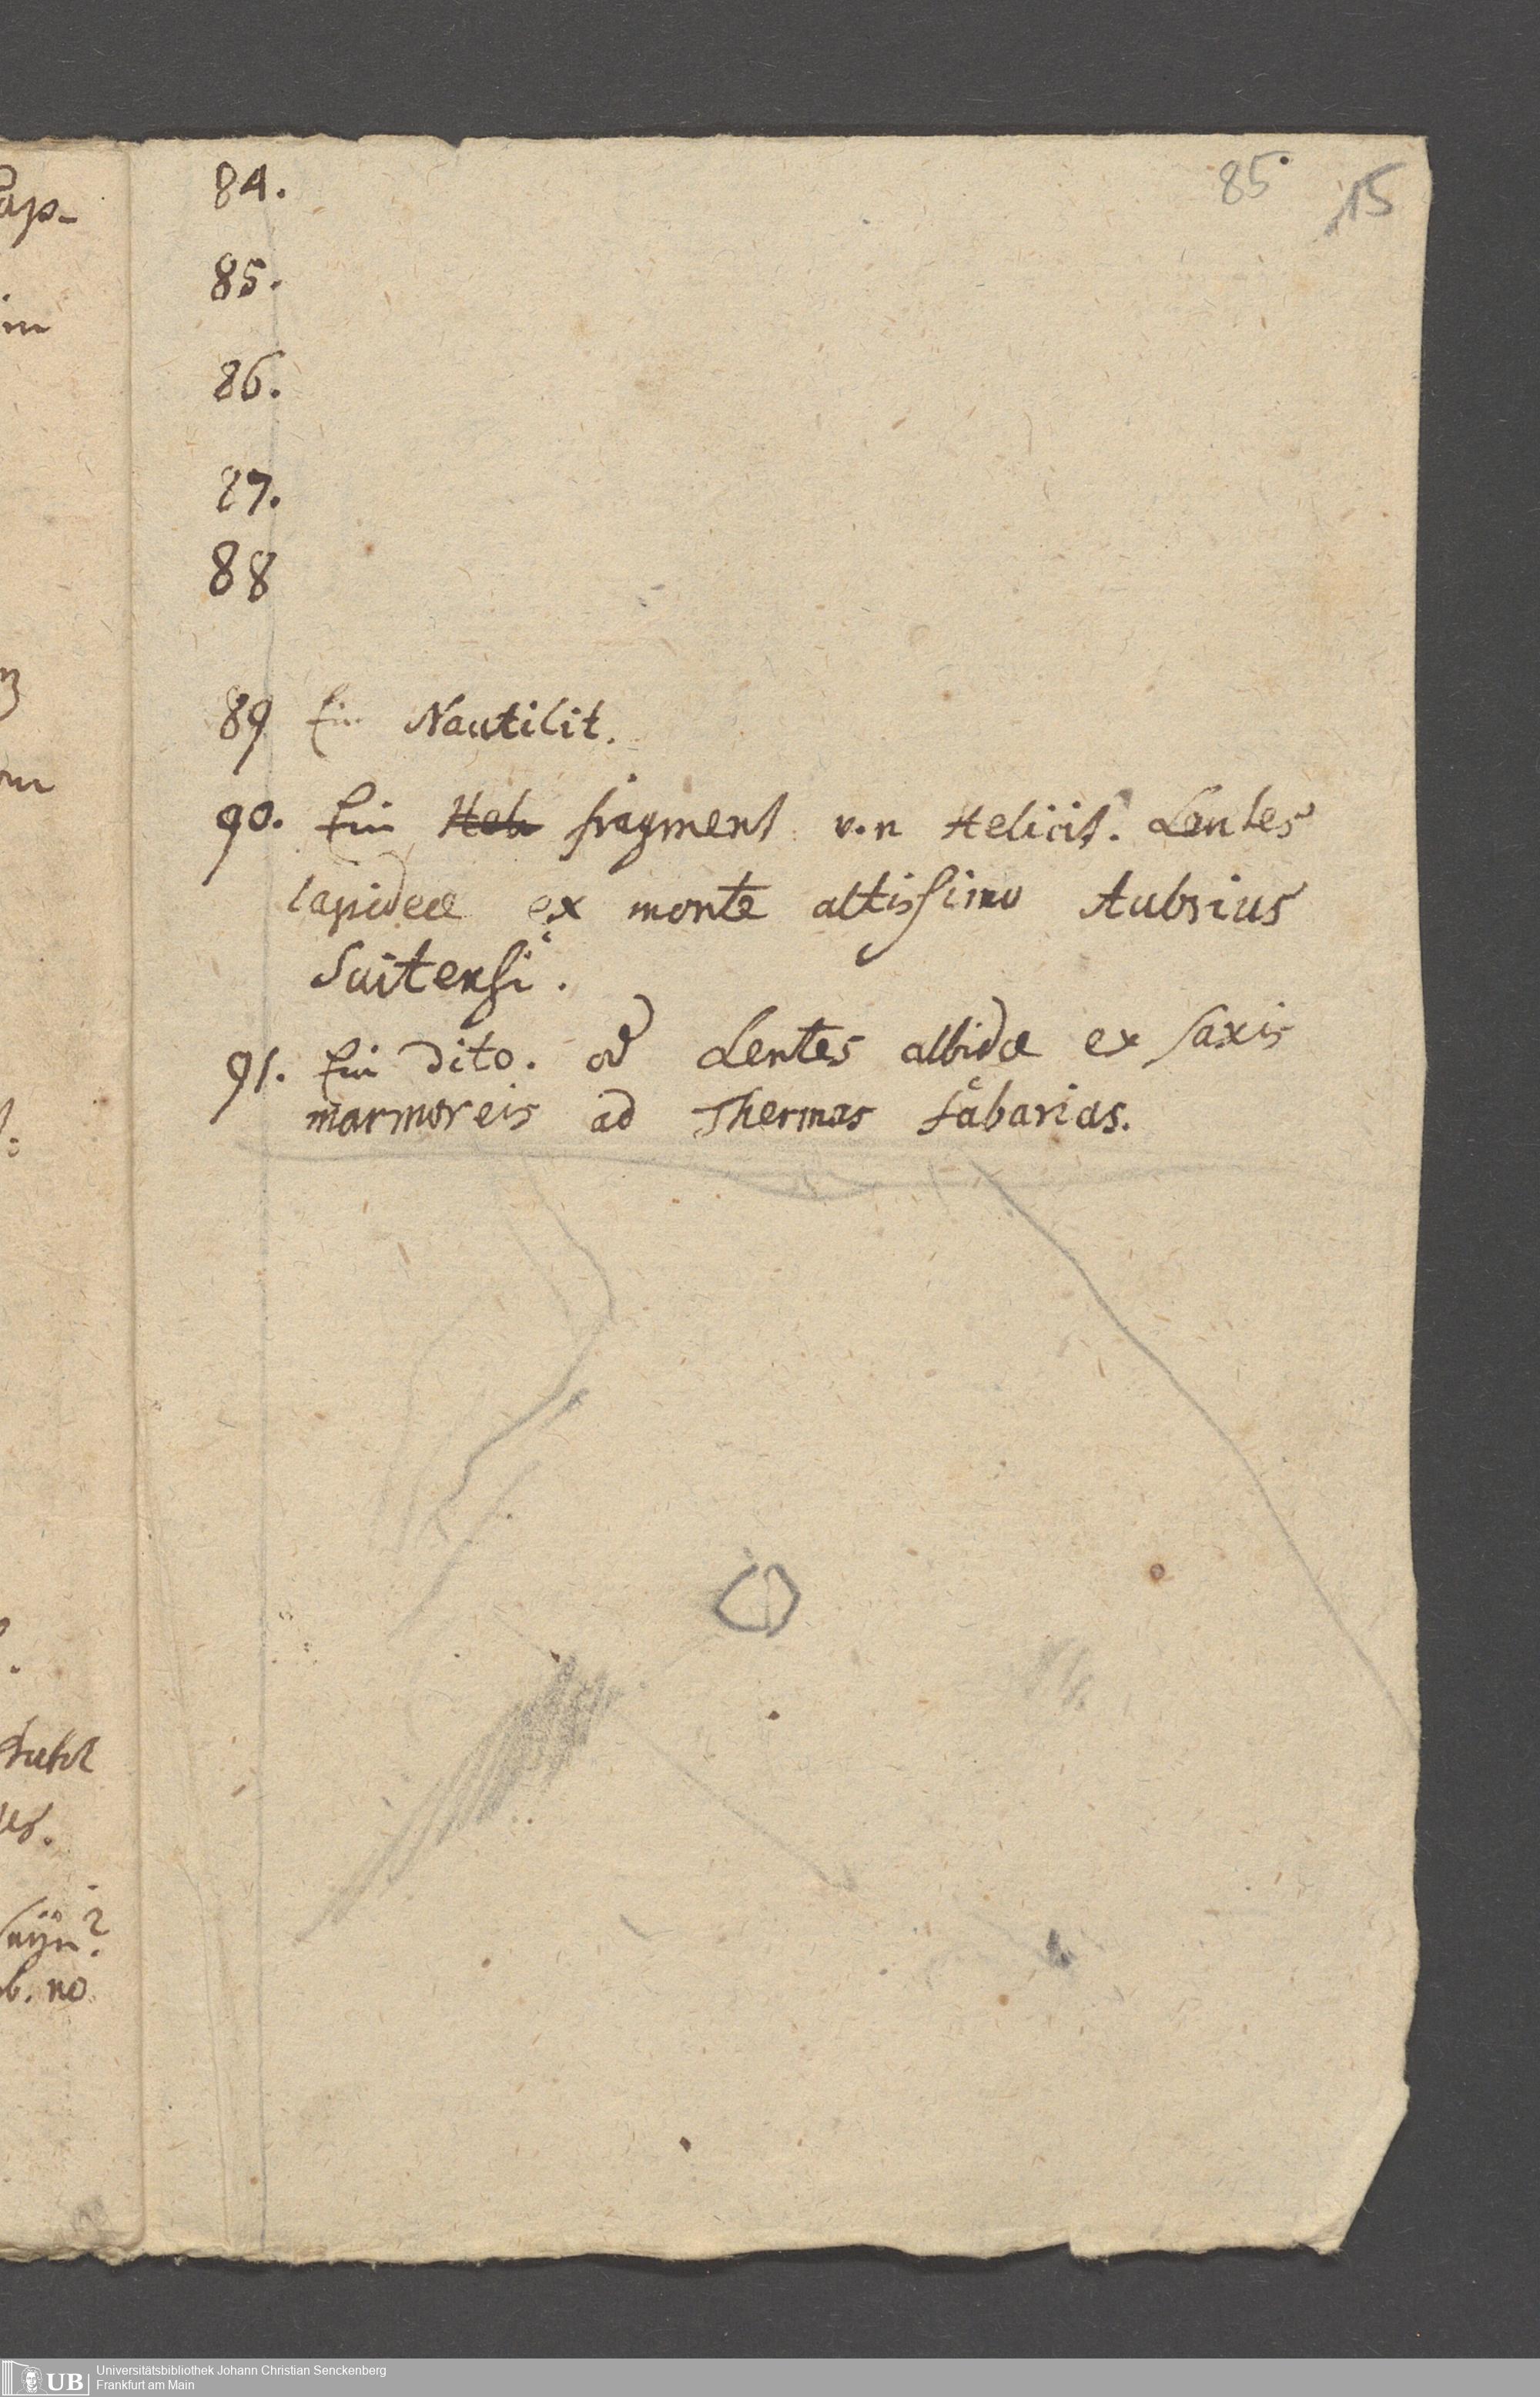 85. 15
84.
85.
86.
87.
88
89 Ein Nautilit.
90. Ein Heli fragment v.n Helicit. Lentes
lapideæ ex monte altissimo Aubrius
Suitensi.
91. Ein dito. od Lentes albidæ ex saxis
marmoreis ad Thermas fabarias.
ap-
in
seyn?
b. no
Universitätsbibliothek Johann Christian Senckenberg
Frankfurt am Main
UB